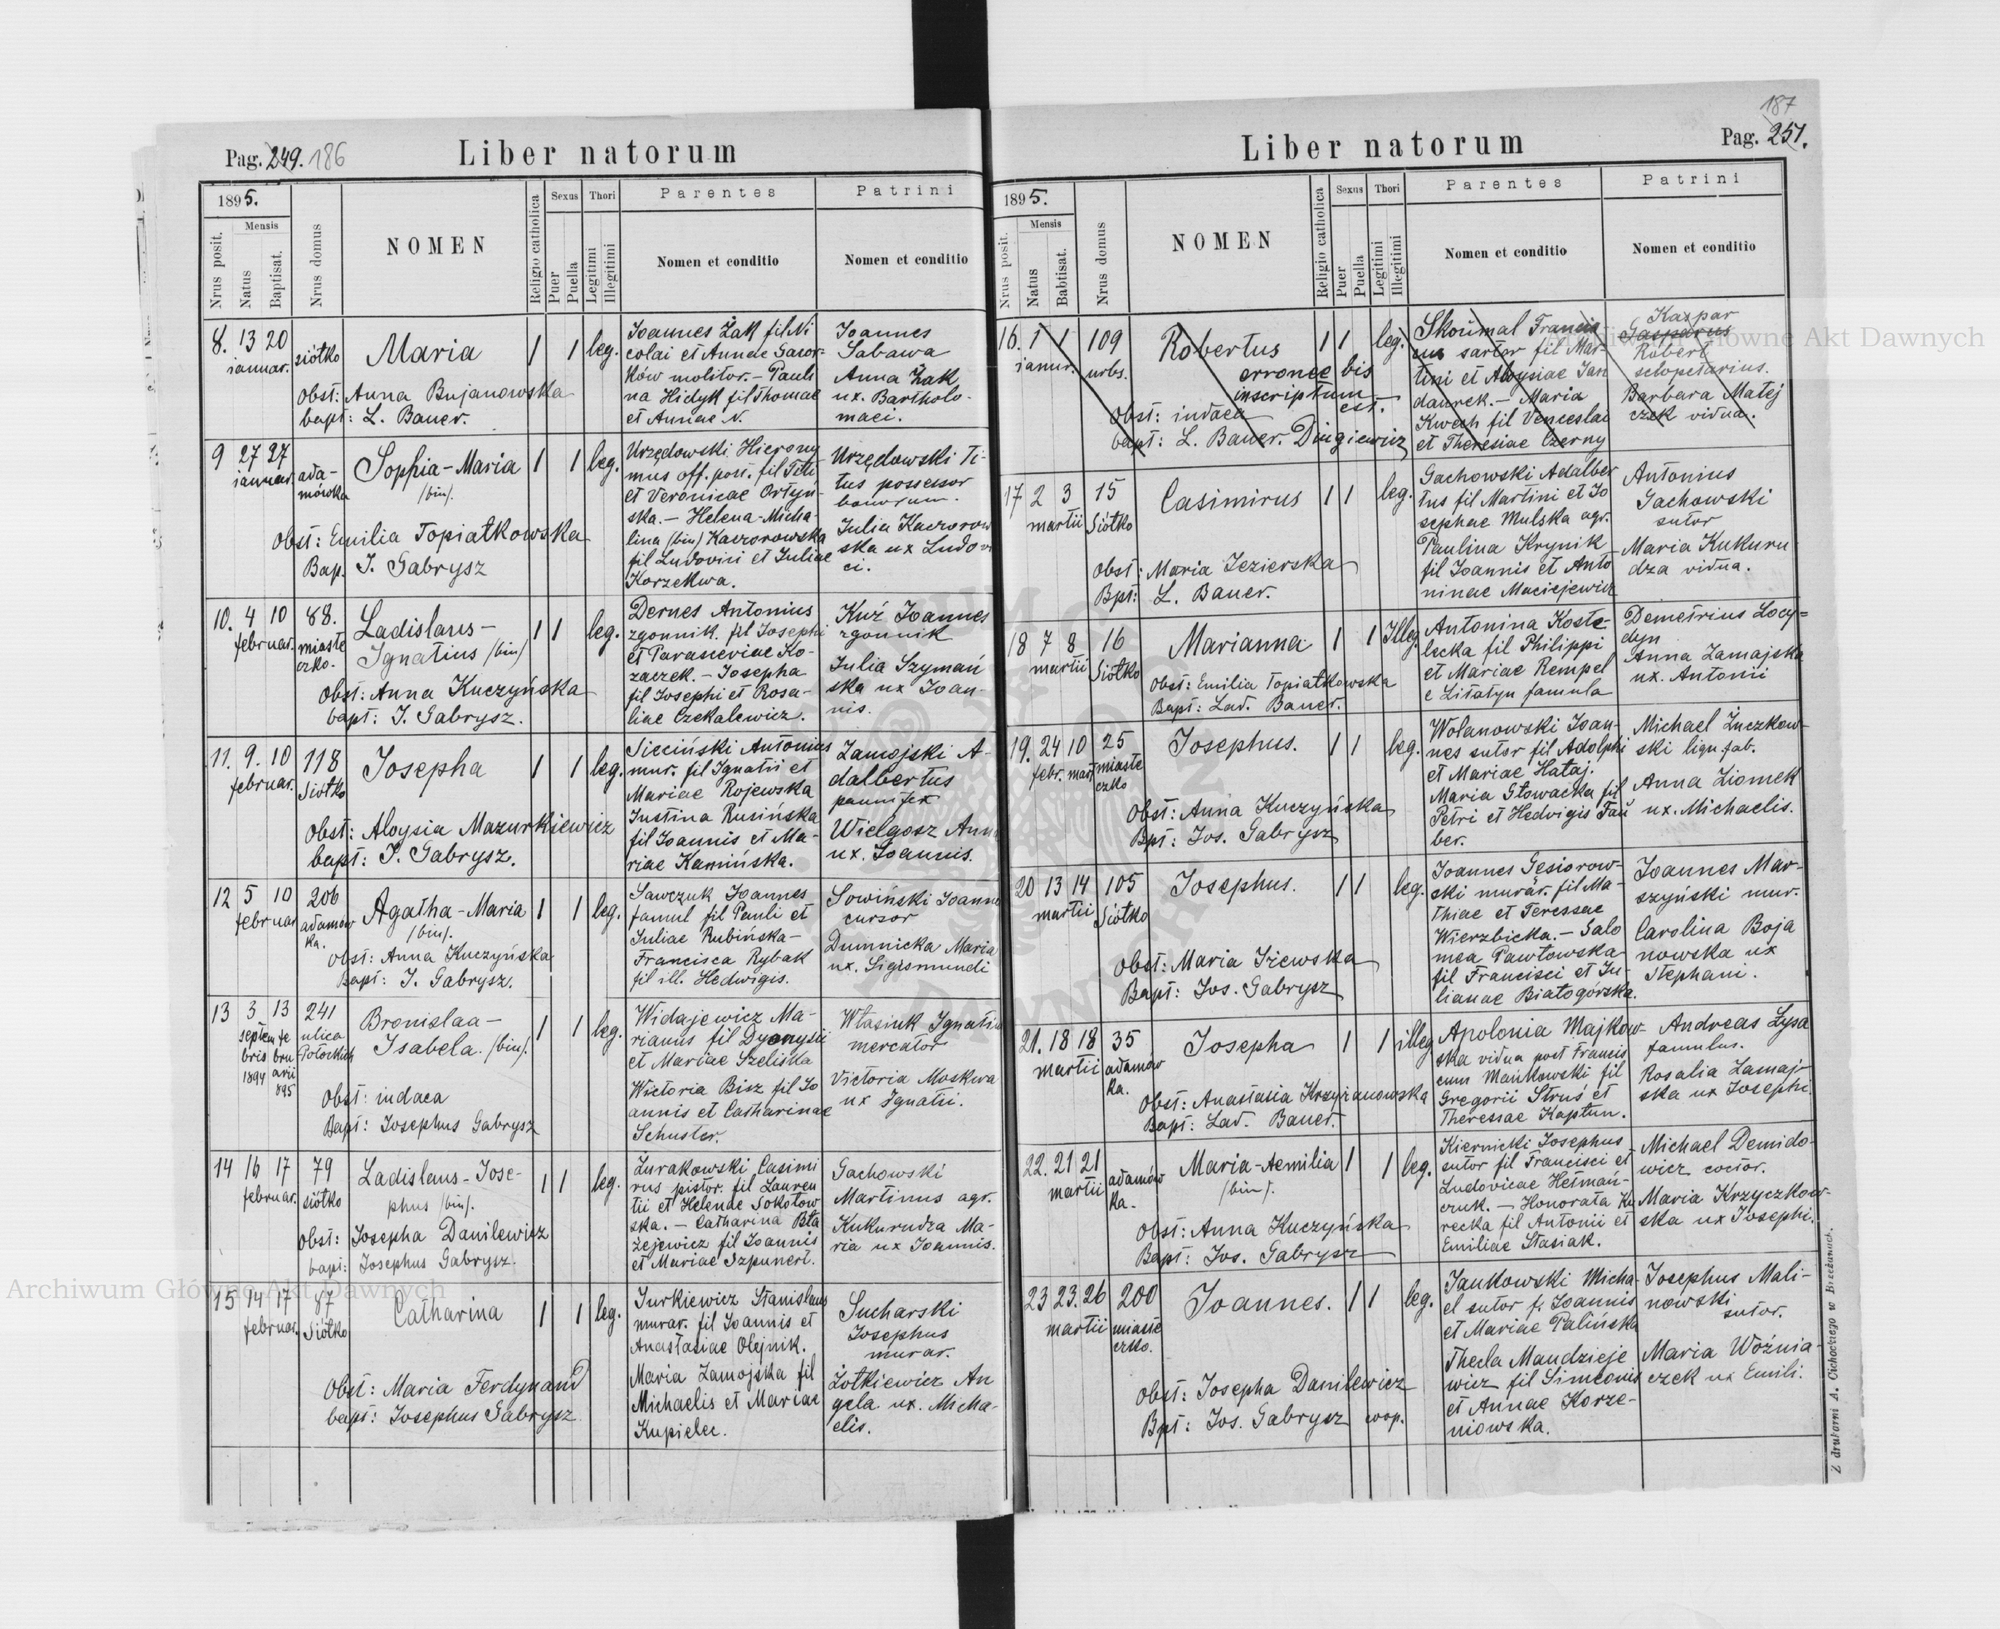 Pag. 249. 186
Liber natorum
1895.
Nrus posit.
Mensis
Natus
Baptisat.
Nrus domus
NOMEN
Religio catholica
Sexus
Puer
Puella
Thori
Legitimi
Illegitimi
Parentes
Nomen et conditio
Patrini
Nomen et conditio
8. 13 20 siótko Maria 1 1 leg.
ianuar.
Obst: Anna Bujanowska
bapt: L. Bauer.
Joannes Żak fil Ni
colai et Annae Gawor-
ków molitor. – Pauli
na Hidyk fil Thomae
et Annae N.
Joannes
Sabawa
Anna Żak
ux. Bartholo-
maei.
9 27 27 ada-
ianuar. mówka
Sophia-Maria 1 1 leg.
/bin/.
Obst: Emilia Topiatkowska
Bap. J. Gabrysz
Urzędowski Hierony
mus off. post. fil Titi
et Veronicae Ortyń-
ska. – Helena-Micha-
lina /bin/ Kaczorowska
fil Ludovici et Juliae
Korzekwa.
Urzędowski Ti-
tus possessor
bonorum.
Julia Kaczorow
ska ux Ludovi
ci.
10. 4 10 88.
februar. miaste
czko.
Ladislaus- 1 1 leg.
Ignatius /bin/
Obst: Anna Kuczyńska
bapt: J. Gabrysz.
Dernes Antonius
zgonnik. fil Josephi
et Parasceviae Ko-
zaczek. – Josepha
fil Josephi et Rosa-
liae Czekalewicz.
Kuź Joannes
zgonnik
Julia Szymań
ska ux Joan-
nis.
11. 9. 10 118
februar. Siótko
Josepha 1 1 leg.
Obst: Aloysia Mazurkiewicz
bapt: J. Gabrysz.
Sieciński Antonius
mur. fil Ignatii et
Mariae Rojewska
Justina Rusińska
fil Joannis et Ma-
riae Kamińska.
Zamojski A-
dalbertus
pannifex
Wielgosz Anna
ux. Joannis.
12 5 10 206
februar adamów
ka.
Agatha-Maria 1 1 leg.
/bin/.
Obst: Anna Kuczyńska
Bapt: J. Gabrysz.
Sawczuk Joannes
famul fil Pauli et
Juliae Rubińska –
Francisca Rybak
fil ill. Hedwigis.
Sowiński Joannes
cursor
Dumnicka Maria
ux. Sigismundi
13 3 13 241
septem fe ulica
bris bru Potockich
1894 arii
895
Bronislaa- 1 1 leg.
Isabela. /bin/.
Obst: iudaea
Bapt: Josephus Gabrysz
Widajewicz Ma-
rianus fil Dyonysii
et Mariae Szeliska
Wictoria Bisz fil Jo
annis et Catharinae
Schuster.
Własiuk Ignatius
mercator
Victoria Moskwa
ux Ignatii.
14 16 17 79
februar. siótko
Ladislaus-Jose- 1 1 leg.
phus /bin/.
Obst: Josepha Danilewicz
bapt: Josephus Gabrysz.
Żurakowski Casimi
rus pistor. fil Lauren
tii et Helenae Sokołow
ska. – Catharina Bła
żejewicz fil Joannis
et Mariae Szpunert.
Gachowski
Martinus agr.
Kukurudza Ma-
ria ux Joannis.
15 14 17 87
februar. Siótko
Catharina 1 1 leg.
Obst: Maria Ferdynand
bapt: Josephus Gabrysz
Jurkiewicz Stanislaus
murar. fil Joannis et
Anastasiae Olejnik.
Maria Zamojska fil
Michaelis et Mariae
Kupielec.
Sucharski
Josephus
murar.
Żotkiewicz An
gela ux. Micha-
elis.
187
Liber natorum
Pag. 251.
1895.
Nrus posit.
Mensis
Natus
Babtisat.
Nrus domus
NOMEN
Religio catholica
Sexus
Puer
Puella
Thori
Legitimi
Illegitimi
Parentes
Nomen et conditio
Patrini
Nomen et conditio
16. 1 1 109
ianur. urbs.
Robertus 1 1 leg.
erronee bis
inscriptum
est.
Obst: iudaea
bapt: L. Bauer. Dzugiewicz
Skoumal Francis
cus sartor fil Mar-
tini et Aloysiae Jan
daurek. – Maria
Kwech fil Venceslai
et Theresiae Czerny
Kaspar
Gasparus
Robert
sclopetarius.
Barbara Matej
czek vidua.
17 2 3 15
martii Siótko
Casimirus 1 1 leg.
Obst: Maria Jezierska
Bpt: L. Bauer.
Gachowski Adalber
tus fil Martini et Jo
sephae Mulska agr.
Paulina Krynik
fil Joannis et Anto
ninae Maciejewicz
Antonius
Gachowski
sutor
Maria Kukuru
dza vidua.
18 7 8 16
martii Siótko
Marianna 1 1 Illeg.
Obst: Emilia Topiatkowska
Bapt: Lad. Bauer.
Antonina Koste-
lecka fil Philippi
et Mariae Rempel
e Litatyn famula
Demetrius Locy=
dyn
Anna Zamajska
ux. Antonii
19. 24 10 25
febr. mart. miaste
czko
Josephus. 1 1 leg.
Obst: Anna Kuczyńska
Bpt: Jos. Gabrysz
Wolanowski Joan-
nes sutor fil Adolphi
et Mariae Hataj.
Maria Głowacka fil
Petri et Hedvigis Fau
ber.
Michael Żuczkow-
ski lign. fab.
Anna Ziomek
ux. Michaelis.
20 13 14 105
martii Siótko
Josephus. 1 1 leg.
Obst: Maria Iżewska
Bapt: Jos. Gabrysz
Joannes Gęsiorow-
ski murar. fil Ma-
thiae et Teressae
Wierzbicka. – Salo
mea Pawłowska
fil Francisci et Ju-
lianae Białogórska.
Joannes Mar-
szyński mur.
Carolina Boja
nowska ux
Stephani.
21. 18 18 35
martii adamów
ka.
Josepha 1 1 illeg
Obst: Anastasia Krzyżanowska
Bapt: Lad. Bauer.
Apolonia Majkow-
ska vidua post Francis
cum Mańkowski fil
Gregorii Struś et
Theressae Kapłun.
Andreas Łysa
famulus.
Rosalia Zamaj-
ska ux Josephi.
22. 21 21
martii adamów
ka.
Maria-Aemilia 1 1 leg.
/bin/.
Obst: Anna Kuczyńska
Bapt: Jos. Gabrysz
Kiernicki Josephus
sutor fil Francisci et
Ludovicae Hetmań-
czuk. – Honorata Ku
recka fil Antonii et
Emiliae Stasiak.
Michael Demido-
wicz coctor.
Maria Krzyczkow-
ska ux Josephi.
23 23. 26 200
martii miaste
czko.
Joannes. 1 1 leg.
Obst: Josepha Danilewicz
Bpt: Jos. Gabrysz coop.
Jankowski Micha-
el sutor f. Joannis
et Mariae Palińska
Thecla Maudzieje
wicz fil Simeonis
et Annae Korze-
niowska.
Josephus Mali-
nowski
sutor.
Maria Woźnia-
czek ux Emili.
Z drukarni A. Cichockiego w Brzeżanach.
Archiwum Główne Akt Dawnych
Archiwum Główne Akt Dawnych